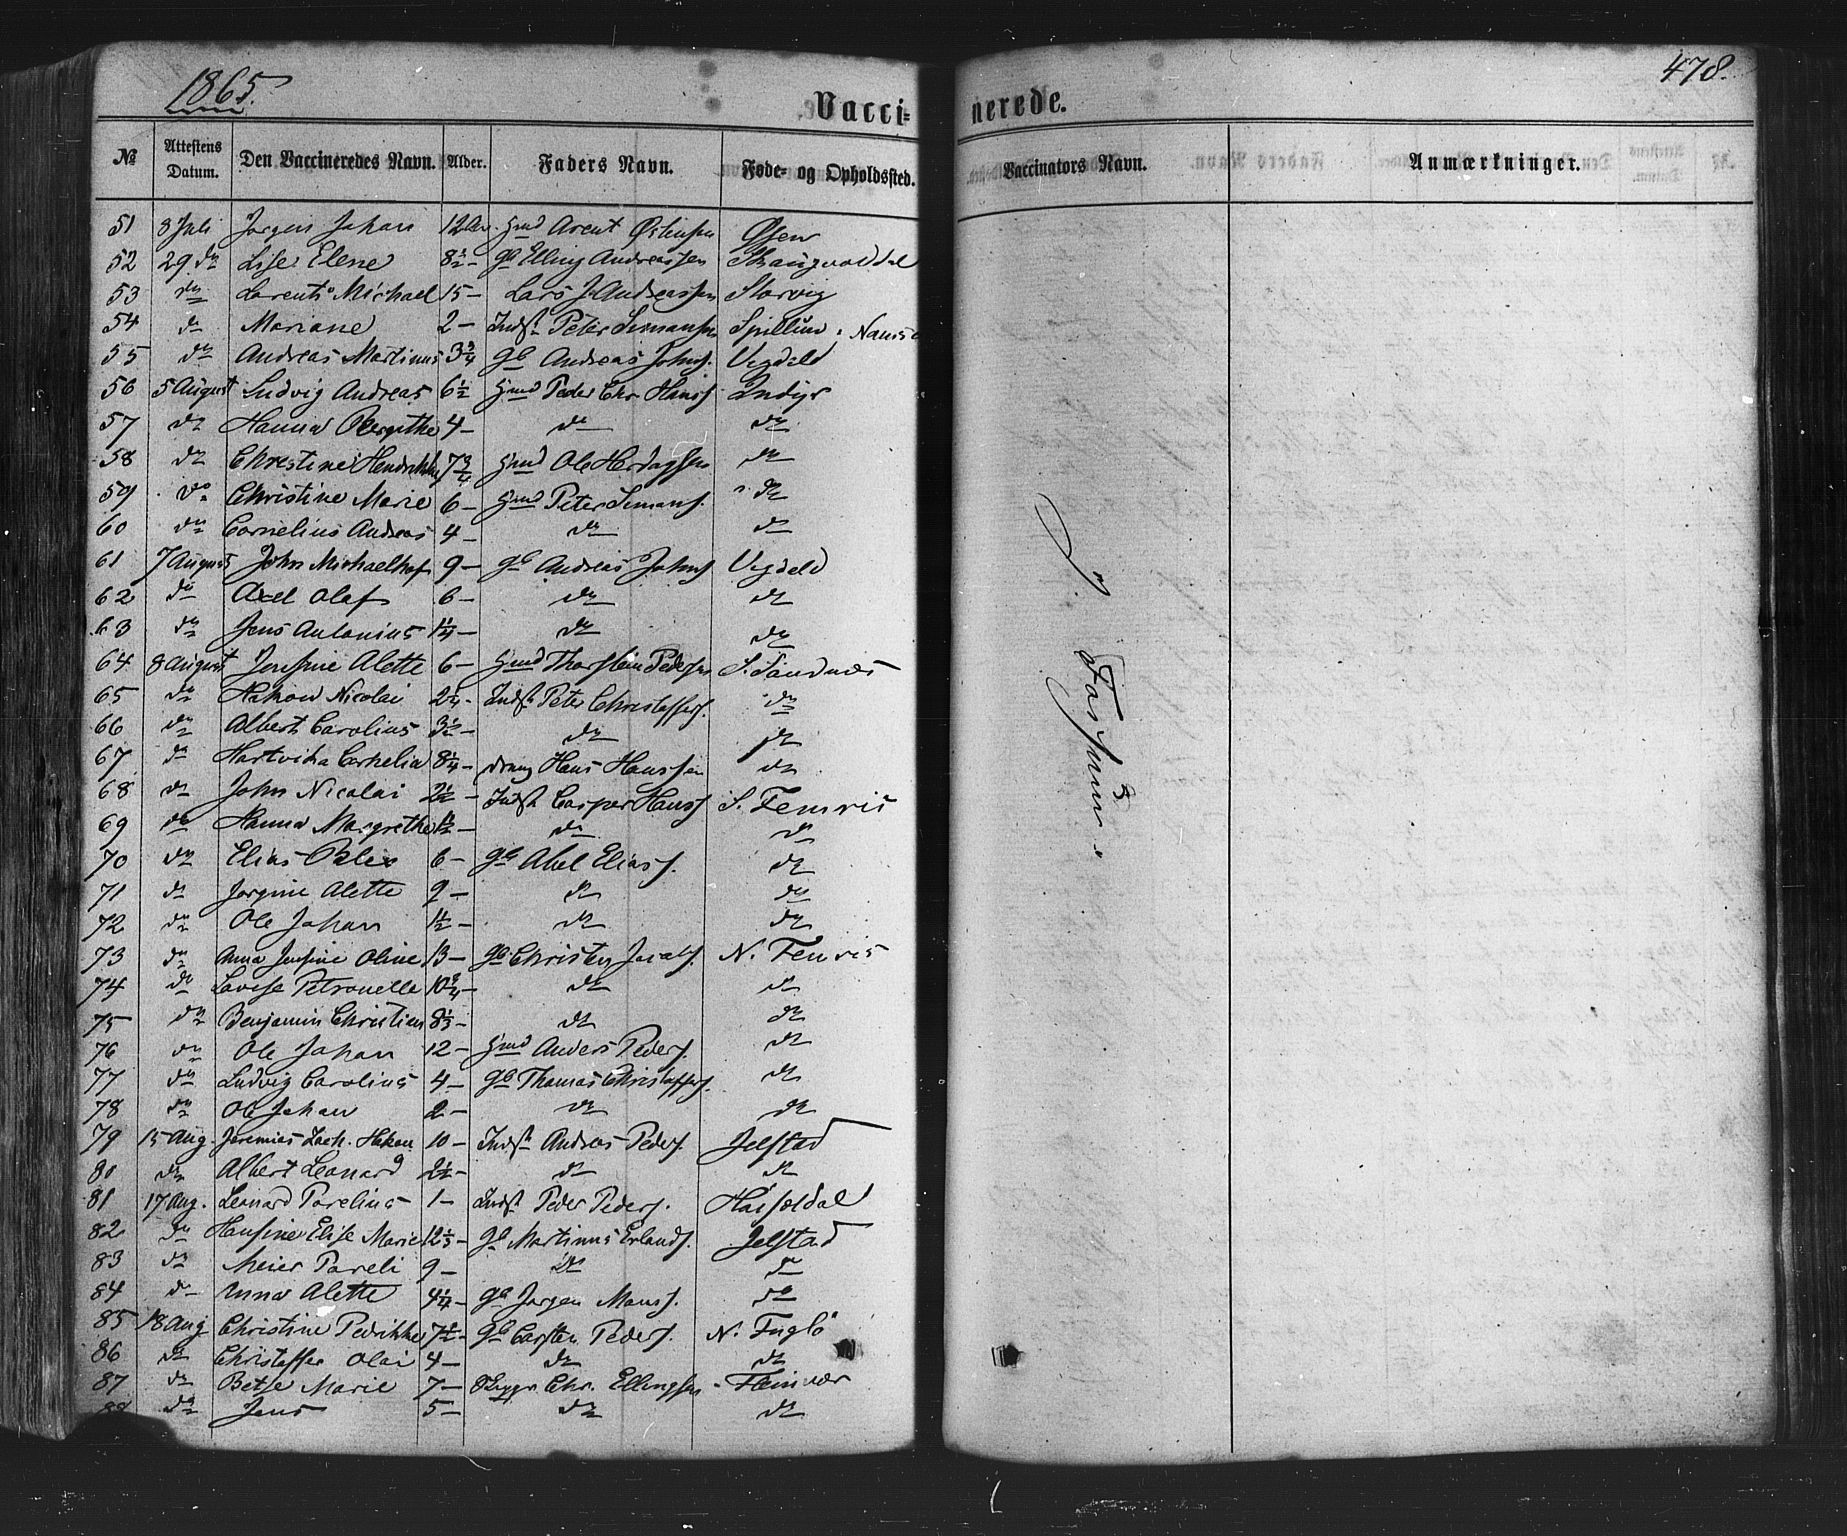 1865.
478.
Vacci- nerede.
№ Attestens Datum. Den Vaccineredes Navn. Alder. Faders Navn. Føde- og Opholdssted. Vaccinators Navn. Anmærkninger.
51 8 Juli Jørgen Johan 12 Aar. Hmd Arent Østensen Osen
52 29 do Lise Elene 8 1/2 - Gb Elling Andreassen
53 do Larents Michael 15 - Lars J. Andreassen Storvig
54 do Mariane 2 - Indst. Peter Simonsen Spillum,
55 do Andreas Martinus 3 3/4 Gb Andreas Johns. Vigdeld
56 5 August Ludvig Andreas 6 1/2 Hmd Peder Chr Hanss. Indyr
57 do Hanna Bergithe 4 - do do
58 do Christine Hendrikke 7 3/4 Hmd Ole Hertagssen do
59 do Christine Marie 6 - Hmd Peter Simons. do
60 do Cornelius Andreas 4 - do do
61 7 August John Michaelhof 9 - Gb Andreas Johns Vigdeld
62 do Axel Olaf 6 - do do
63 do Jens Antonius 1 1/4 - do do
64 8 August Jensine Alette 6 - Hmd Thorstein Pedersen S. Sandnæs
65 do Hakon Nicolai 2 1/4 - Indst. Peter Christoffers. do
66 do Albert Carolius 3 1/2 - do do
67 do Hartvika Cornelia 8 1/4 - Hans Hanssen do
68 do John Nicolai 2 1/2 - Indst Casper Hanss S. Femris
69 do Hanna Margrethe 1 1/2 - do do
70 do Elias 6 - Gb Abel Eliass. do
71 do Jørgine Alette 9 - do do
72 do Ole Johan 1 1/2 - do do
73 do Anna Jensine Oline 13 - Gb Christen Jacobs. N. Fenris
74 do Lovise Petronelle 10 3/4 - do do
75 do Benjamin Christian 8 1/3 - do do
76 do Ole Johan 12 - Hmd Anders Peders. do
77 do Ludvig Carolius 4 - Gb Thomas Christoffers. do
78 do Ole Johan 2 - do do
79 15 Aug. Jeremias Zach. Hakon 10 - Indst Andreas Peders. Jelstad
80 do Albert Leonard 2 1/2 - do do
81 17 Aug. Leonard Parelius 1 - Indst Peder Peders.
82 do Hansine Elise Marie 12 1/3 - Gb Martinus Erlands. Jelstad
83 do Meier Pareli 9 - do do
84 do Anna Alette 4 1/4 - Gb Jørgen Monss. do
85 18 Aug Christine Pedrikke 7 1/2 - Gb Carsten Peders. N. Fuglø
86 do Christoffer Olai 4 - do do
87 do Betse Marie 7 - Chr. Ellingsen Fleinvær
88 do Jens 5 - do do